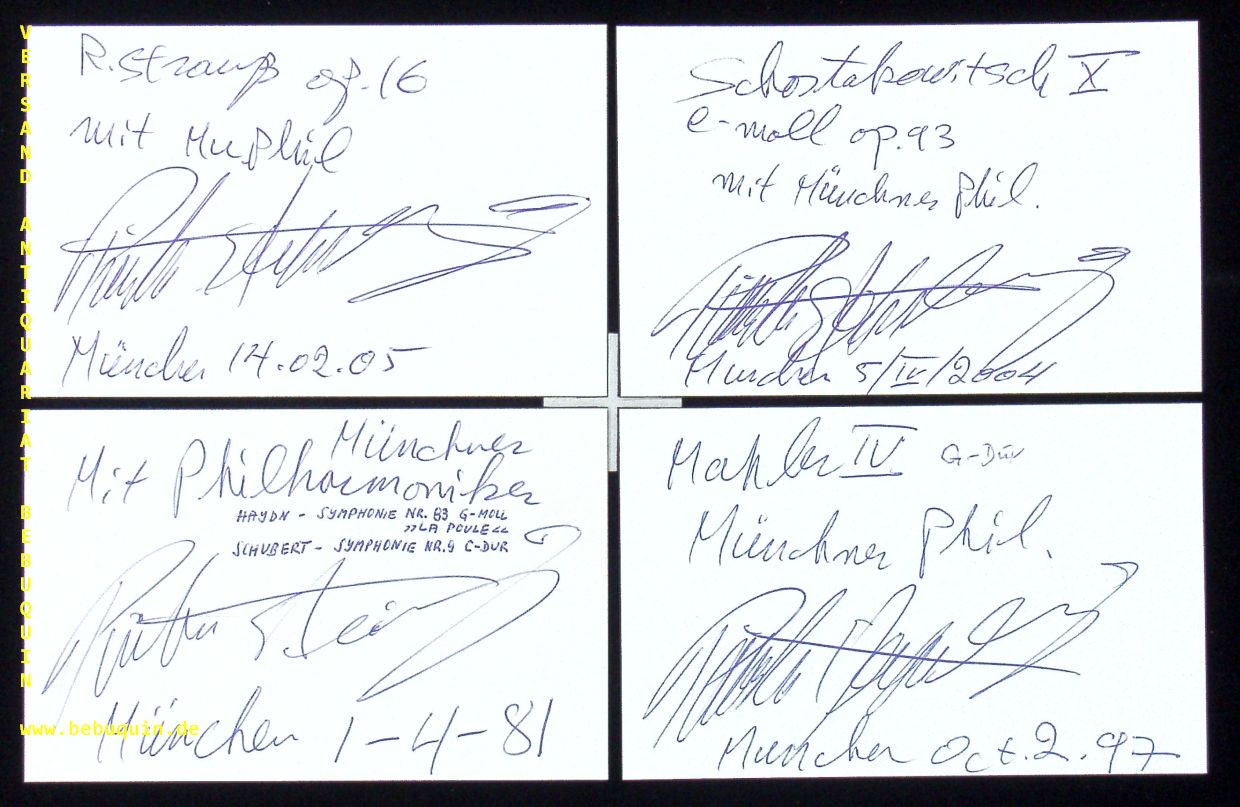 VERSAND ANTIQUARIAT BEBUQUIN
www.bebuquin.de
R. Strauß op. 16
mit MuPhil
München 14.02.05
Schostakowitsch X
e-moll op. 93
mit Münchner Phil.
München 5/IV/2004
Münchner
Mit Philharmoniker
HAYDN - SYMPHONIE NR. 83 G-MOLL
>>LA POULE<<
SCHUBERT - SYMPHONIE NR. 9 C-DUR
München 1-4-81
Mahler IV G-Dur
Münchner Phil.
München Oct. 2. 97